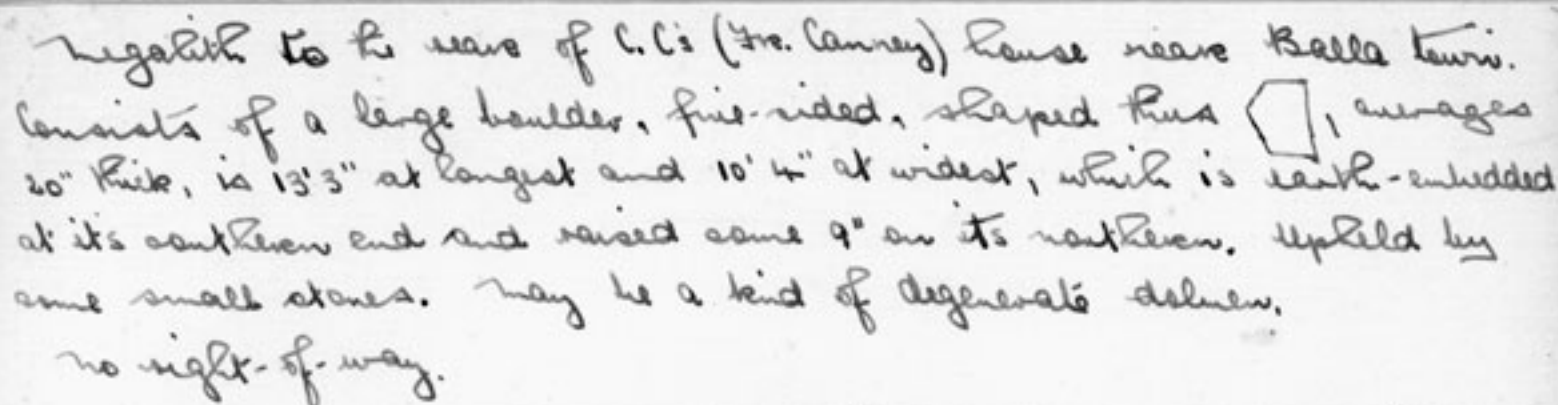 Megalith to the rear of C.C's (Fr. Canney) house near Balla town.
Consists of a large boulder, five-sided, shaped thus , averages
20" thick, is 13'3" at longest and 10'4" at widest, which is earth-embedded
at its southern end and raised some 9" on its northern. Upheld by
some small stones. May be a kind of degenerate dolmen.
No right-of-way.